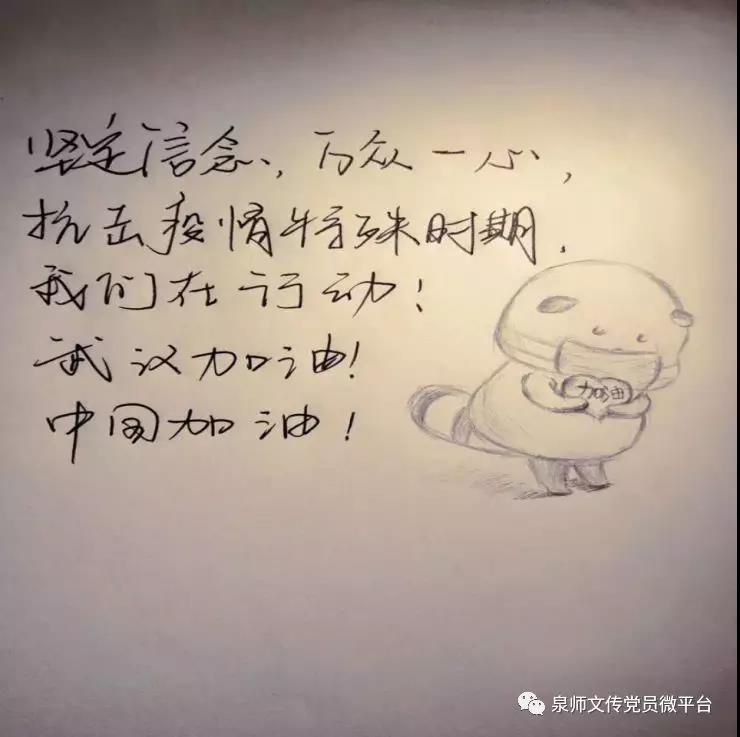 坚定信念，万众一心，
抗击疫情特殊时期，
我们在行动！
武汉加油！
中国加油！
加油
泉师文传党员微平台